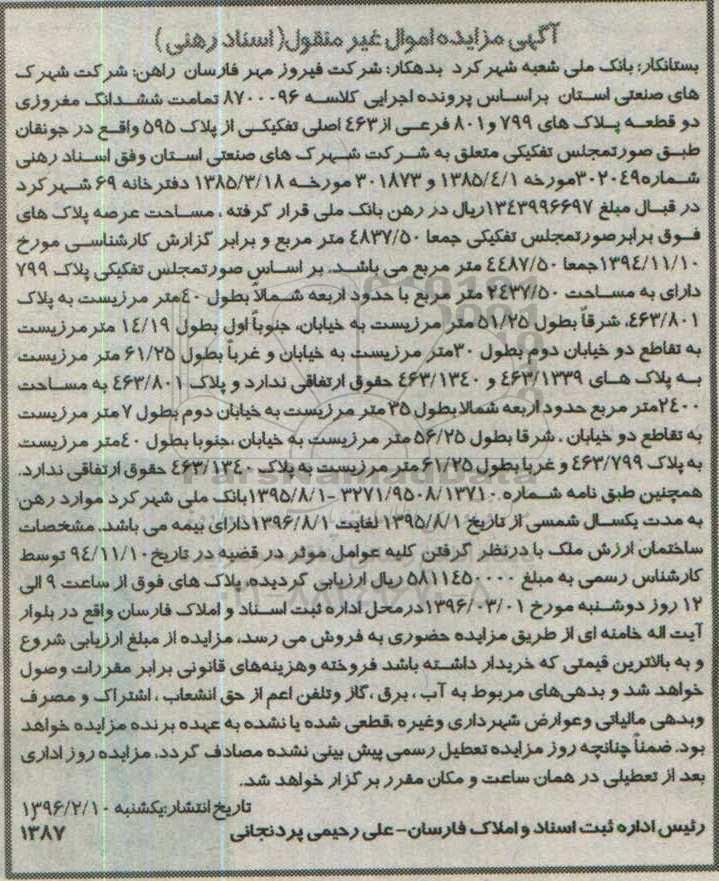 آگهی مزایده اموال غیر منقول (اسناد رهنی)
بستانکار: بانک ملی شعبه شهر کرد بدهکار: شرکت فیروز مهر فارسان راهن: شرکت شهرک
های صنعتی استان براساس پرونده اجرایی کلاسه ۸۷۰۰۰۹۶ تمامت ششدانگ مفروزی
دو قطعه پلاک های ۷۹۹ و ۸۰۱ فرعی از ۴۶۳ اصلی تفکیکی از پلاک ۵۹۵ واقع در جونقان
طبق صورتمجلس تفکیکی متعلق به شرکت شهرک های صنعتی استان وفق اسناد رهنی
شماره ۳۰۲۰۴۹ مورخه ۱۳۸۵/۴/۱ و ۳۰۱۸۷۳ مورخه ۱۳۸۵/۳/۱۸ دفترخانه ۶۹ شهر کرد
در قبال مبلغ ۱۳۴۳۹۹۶۶۹۷ ریال در رهن بانک ملی قرار گرفته ، مساحت عرصه پلاک های
فوق برابر صورتمجلس تفکیکی جمعا ۴۸۳۷/۵۰ متر مربع و برابر گزارش کارشناسی مورخ
۱۳۹۴/۱۱/۱۰ جمعا ۴۴۸۷/۵۰ متر مربع می باشد. بر اساس صورتمجلس تفکیکی پلاک ۷۹۹
دارای به مساحت ۲۴۳۷/۵۰ متر مربع با حدود اربعه شمالاً بطول ۴۰ متر مرزیست به پلاک
۴۶۳/۸۰۱، شرقاً بطول ۵۱/۲۵ متر مرزیست به خیابان، جنوباً اول بطول ۱۴/۱۹ متر مرزیست
به تقاطع دو خیابان دوم بطول ۳۰ متر مرزیست به خیابان و غرباً بطول ۶۱/۲۵ متر مرزیست
به پلاک های ۴۶۳/۱۳۳۹ و ۴۶۳/۱۳۴۰ حقوق ارتفاقی ندارد و پلاک ۴۶۳/۸۰۱ به مساحت
۲۴۰۰ متر مربع حدود اربعه شمالا بطول ۳۵ متر مرزیست به خیابان دوم بطول ۷ متر مرزیست
به تقاطع دو خیابان ، شرقا بطول ۵۶/۲۵ متر مرزیست به خیابان ،جنوبا بطول ۴۰ متر مرزیست
به پلاک ۴۶۳/۷۹۹ و غربا بطول ۶۱/۲۵ متر مرزیست به پلاک ۴۶۳/۱۳۴۰ حقوق ارتفاقی ندارد.
همچنین طبق نامه شماره ۳۲۷۱/۹۵۰۸/۱۳۷۱۰ -۱۳۹۵/۸/۱ بانک ملی شهر کرد موارد رهن
به مدت یکسال شمسی از تاریخ ۱۳۹۵/۸/۱ لغایت ۱۳۹۶/۸/۱ دارای بیمه می باشد. مشخصات
ساختمان ارزش ملک با درنظر گرفتن کلیه عوامل موثر در قضیه در تاریخ ۹۴/۱۱/۱۰ توسط
کارشناس رسمی به مبلغ ۵۸۱۱۴۵۰۰۰۰ ریال ارزیابی گردیده، پلاک های فوق از ساعت ۹ الی
۱۲ روز دوشنبه مورخ ۱۳۹۶/۰۳/۰۱ درمحل اداره ثبت اسناد و املاک فارسان واقع در بلوار
آیت اله خامنه ای از طریق مزایده حضوری به فروش می رسد، مزایده از مبلغ ارزیابی شروع
و به بالاترین قیمتی که خریدار داشته باشد فروخته وهزینه‌های قانونی برابر مقررات وصول
خواهد شد و بدهی‌های مربوط به آب ، برق ،گاز وتلفن اعم از حق انشعاب ، اشتراک و مصرف
وبدهی مالیاتی وعوارض شهرداری وغیره ،قطعی شده یا نشده به عهده برنده مزایده خواهد
بود. ضمناً چنانچه روز مزایده تعطیل رسمی پیش بینی نشده مصادف گردد، مزایده روز اداری
بعد از تعطیلی در همان ساعت و مکان مقرر برگزار خواهد شد.
تاریخ انتشار:یکشنبه ۱۳۹۶/۲/۱۰
رئیس اداره ثبت اسناد و املاک فارسان- علی رحیمی پردنجانی
۱۳۸۷
ParsNamadData